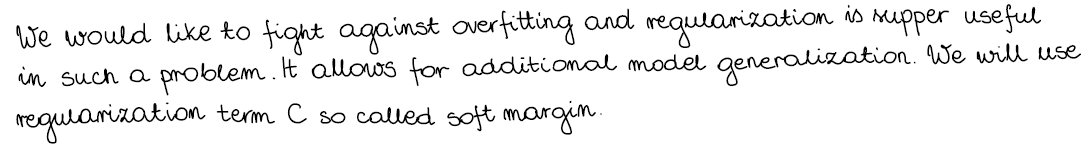 We would like to fight against overfitting and regularization is supper useful
in such a problem. It allows for additional model generalization. We will use
regularization term C so called soft margin.